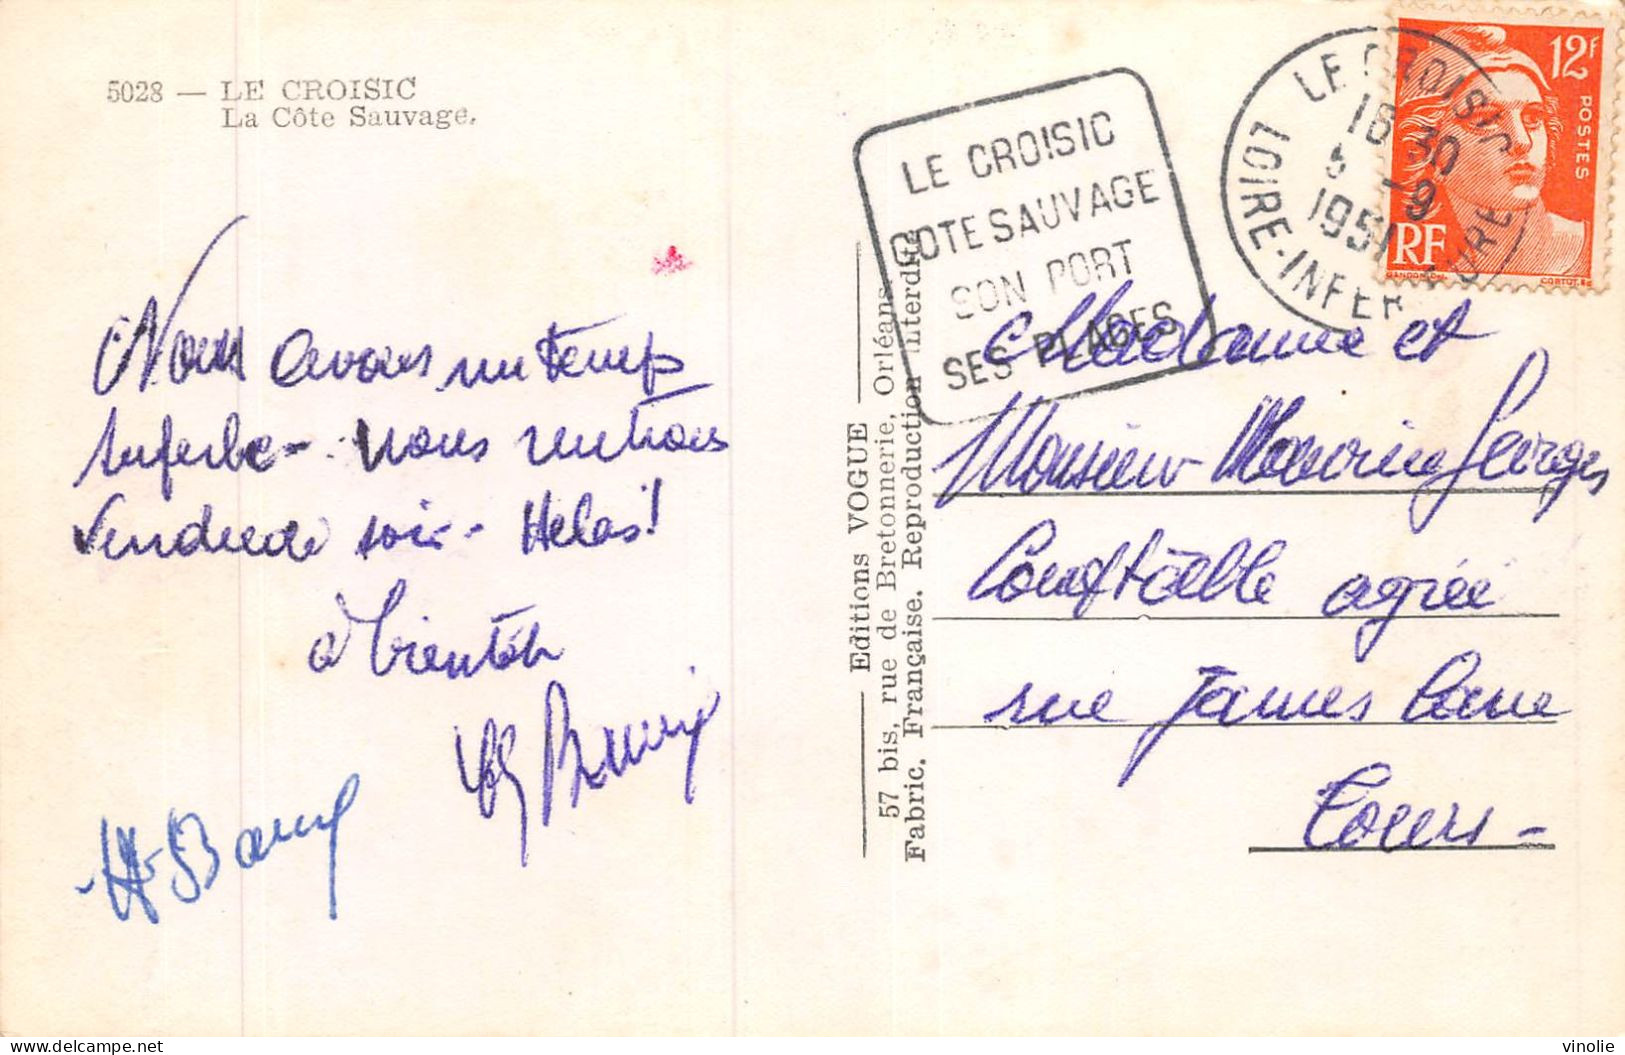 5028 — LE CROISIC
La Côte Sauvage.
Nous avons un temps
superbe - nous rentrons
Vendredi soir - Hélas!
à bientôt
LE CROISIC
COTE SAUVAGE
SON PORT
SES PLAGES
LE CROISIC
16 30
-9
1951
LOIRE-INFERIEURE
12F
POSTES
RF
GANDON
CORTOT
Editions VOGUE
57 bis, rue de Bretonnerie, Orléans
Fabric. Française. Reproduction interdite
Madame et
Monsieur Georges
Comptable agréé
rue James Cane
Tours -
vinolie